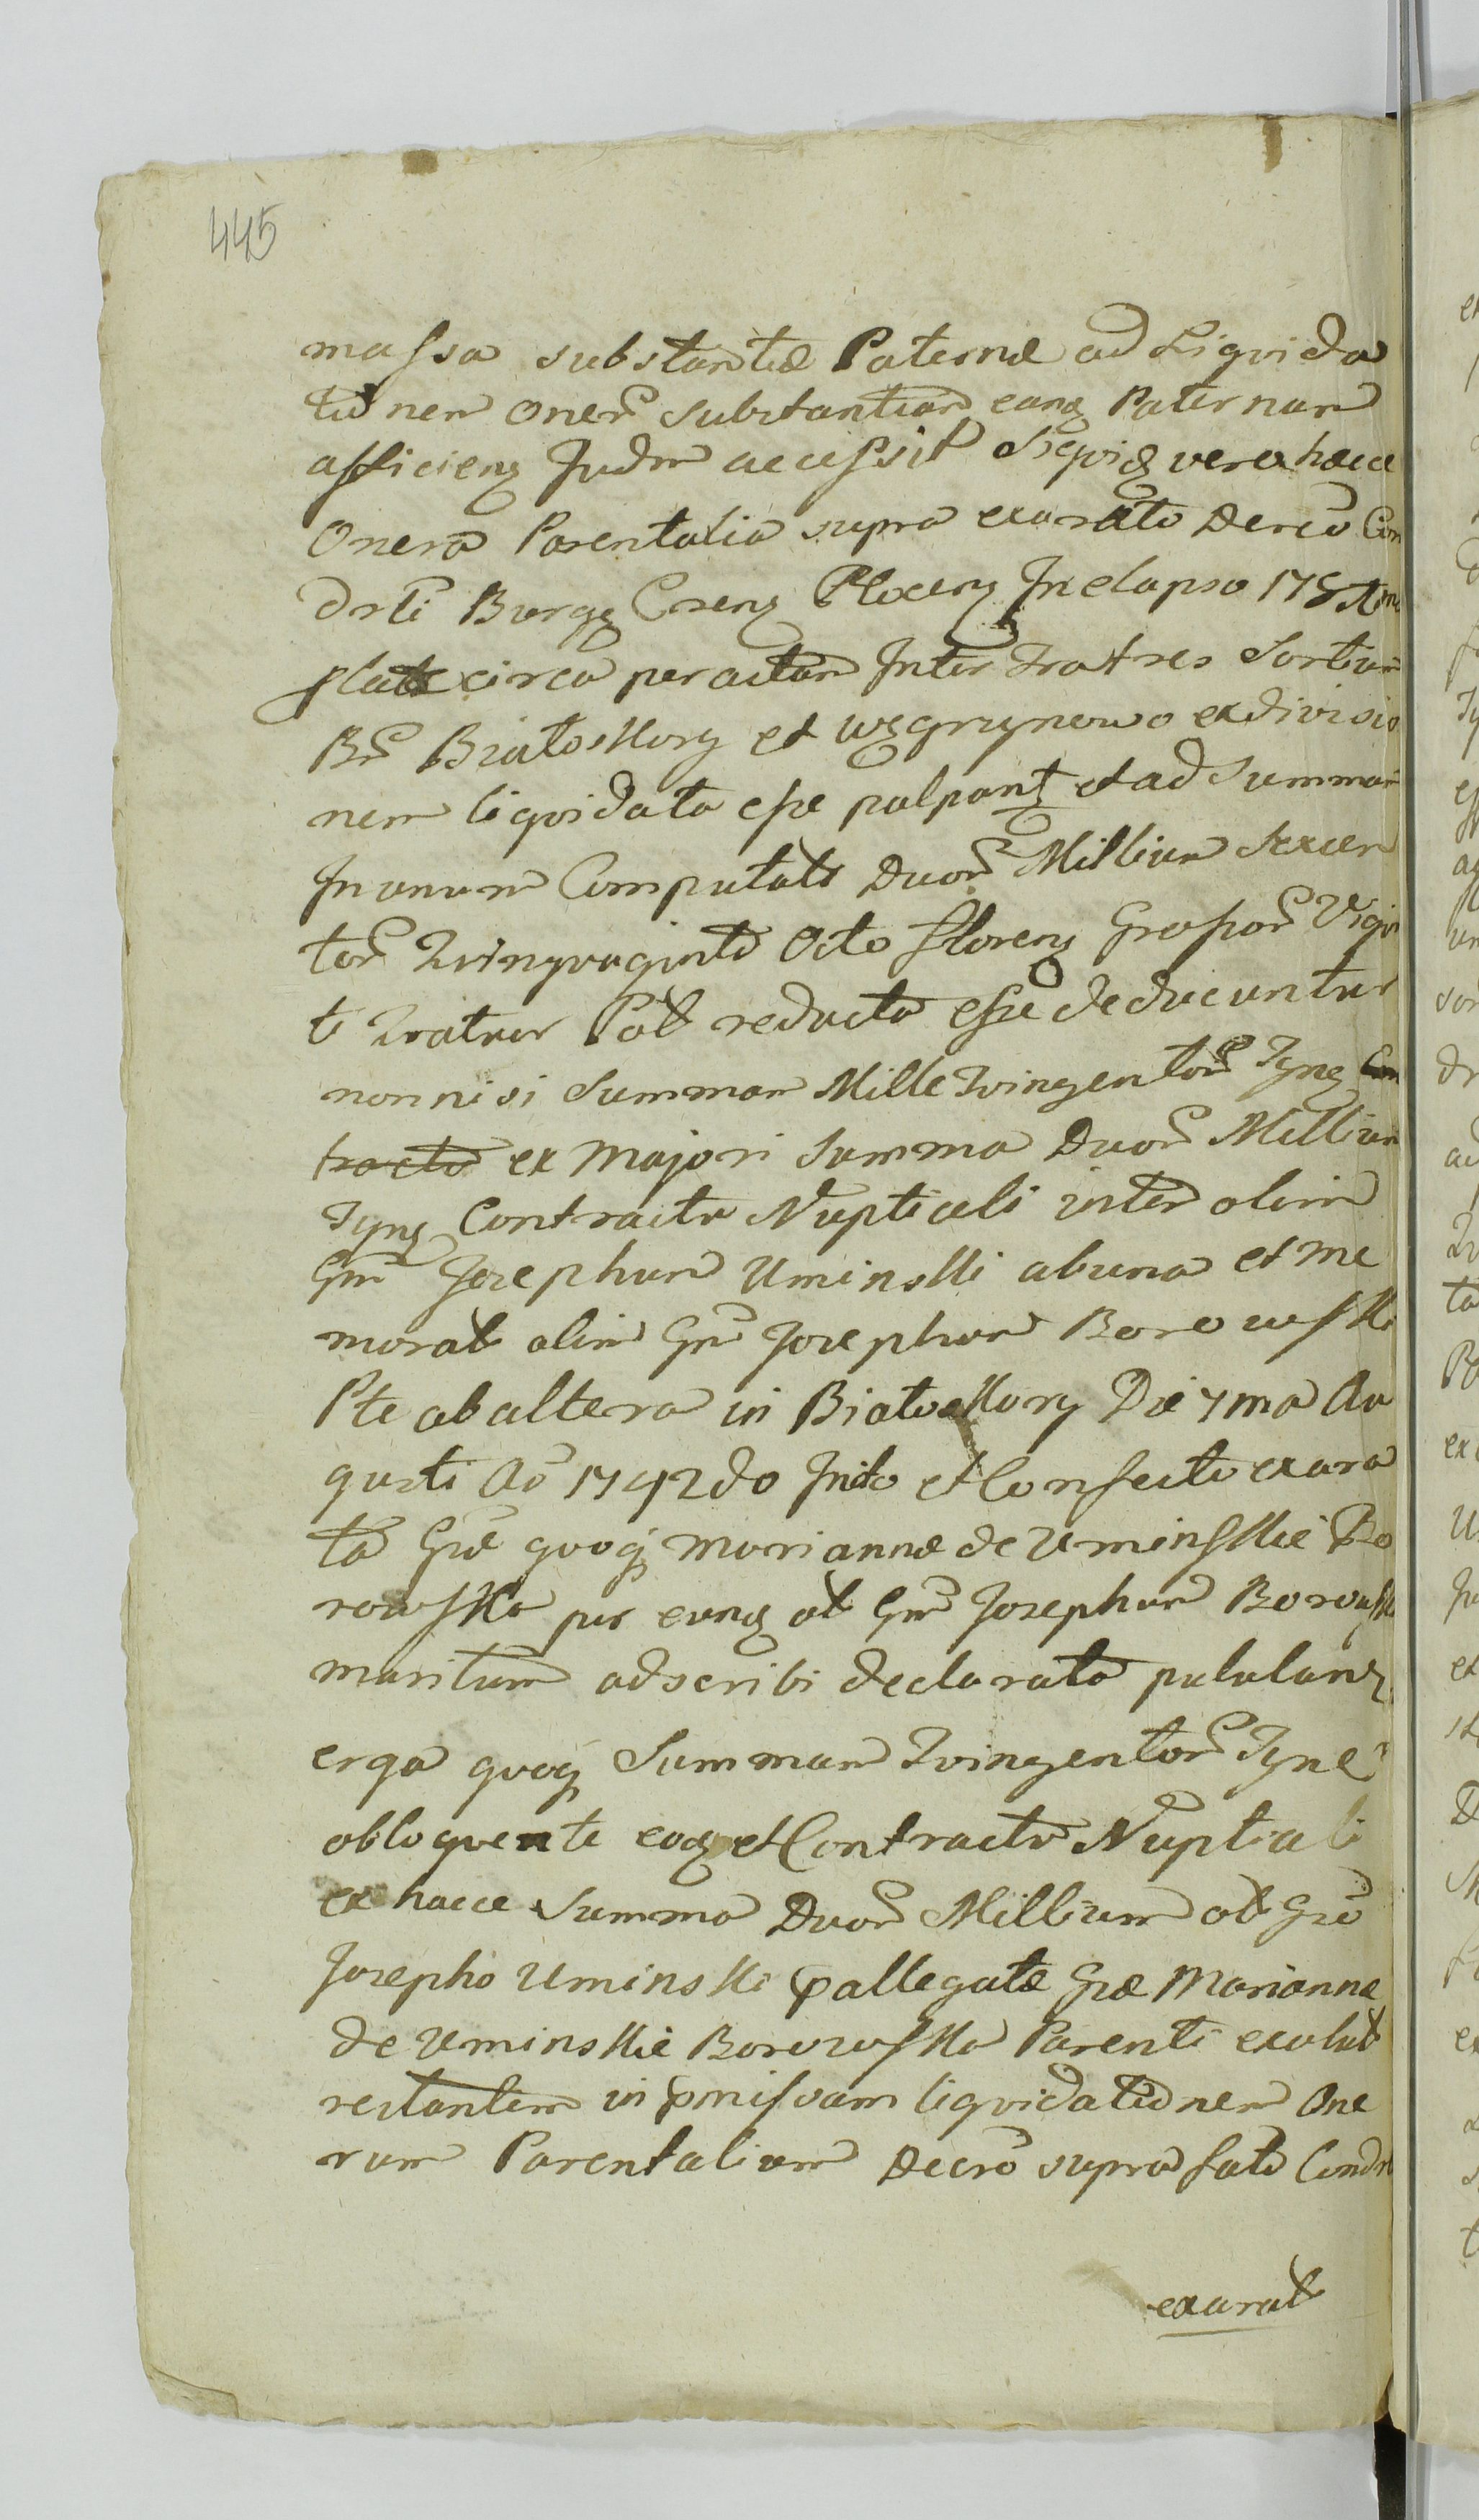 445
massa substantiæ Paternæ ad Liquida
tionem oner substantiam eanq Paternam
afficienq Judm accessit Siquiq vero hæcce
Onera Parentalia supra exarato Decro Con
drti Burgq Crsenq Plocenq In elapso
circa peractam Inter Fratres Sortium
Br Białoskory et Węgrzynowo exdivisio
nem liquidata esse palpant et ad Summam
In unum Computats Duor Millium Sexcen
tor Quinquaginta Octo florenq Grossor Vigin
ti Quatuor Pol reducta esse deducuntur
non nisi Summam Mille Quingentor Tynq Con
tractu ex Majori Summa Duor Millium
Tynq Contractu Nuptiali inter olim
Gm Josephum Uminski ab una et me
morat olim Gm Josephum Borowski
Pte ab altera in Białoskory Die 7ma Au
gusti Ao 1742do Inito et Confecto exara
ta Gæ quoq Mariannæ de Uminskie Bo
rowska per eunq ol Gm Josephum Borowski
maritum adscribi declarata pululanq
erga quoq Summam Quingentor Tyne
obloquente eoq et Contractu Nuptiali
ex hacce Summa Duor Millium ol Gso
Josepho Uminski pallegatæ Gsæ Mariannæ
de Uminskie Borowska Parenti exolut
restantem in pmissam liquidationem One
rum Parentalium Decro supra fati Condrt
exarat